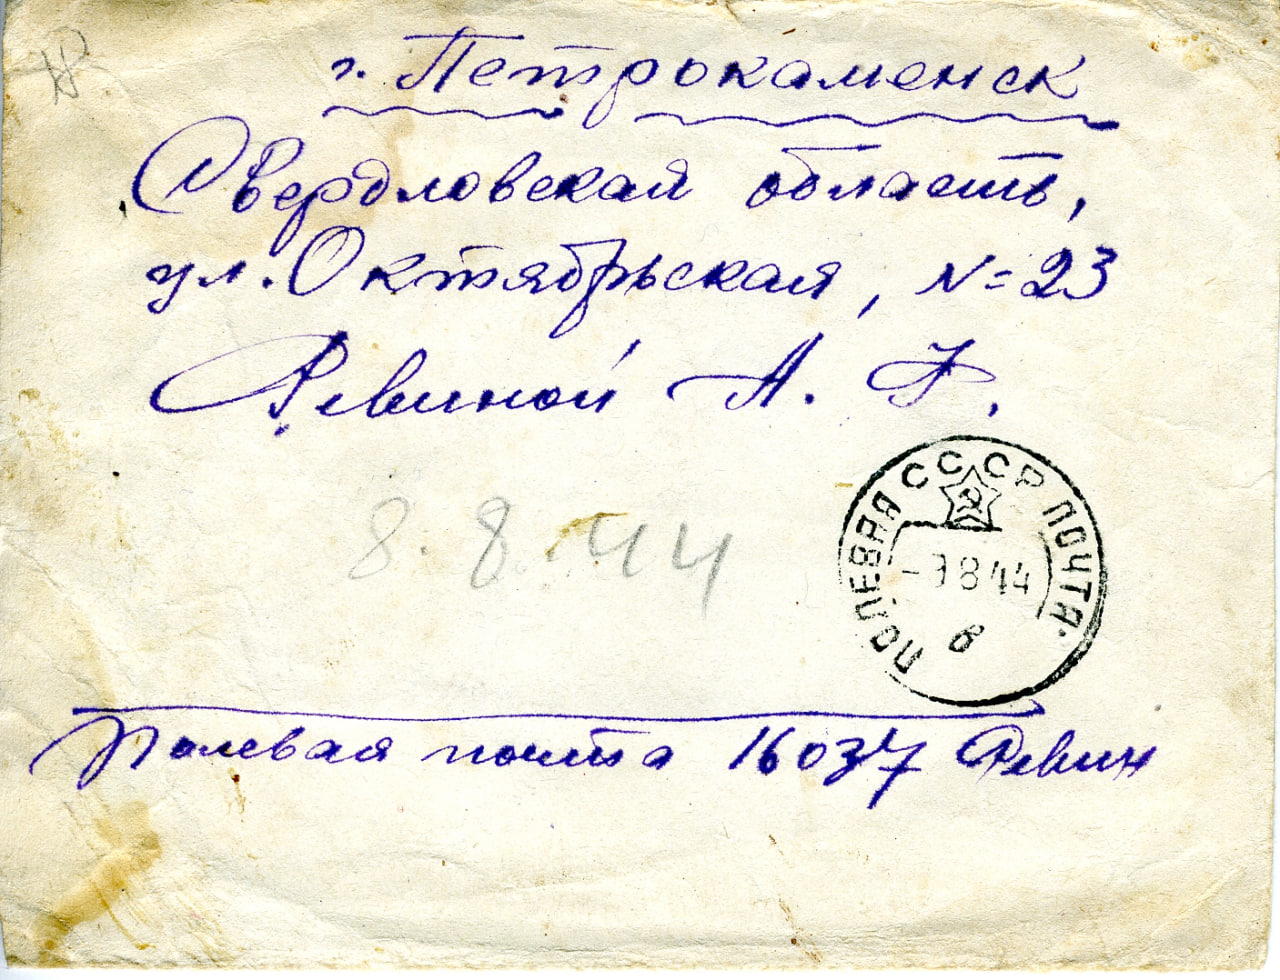 г. Петрокаменск
Свердловская область,
ул. Октябрьская, N=23
Ревиной А.
8.8.44
ПОЛЕВАЯ СССР ПОЧТА
-7 8 44
в
Полевая почта 16037 Ревин